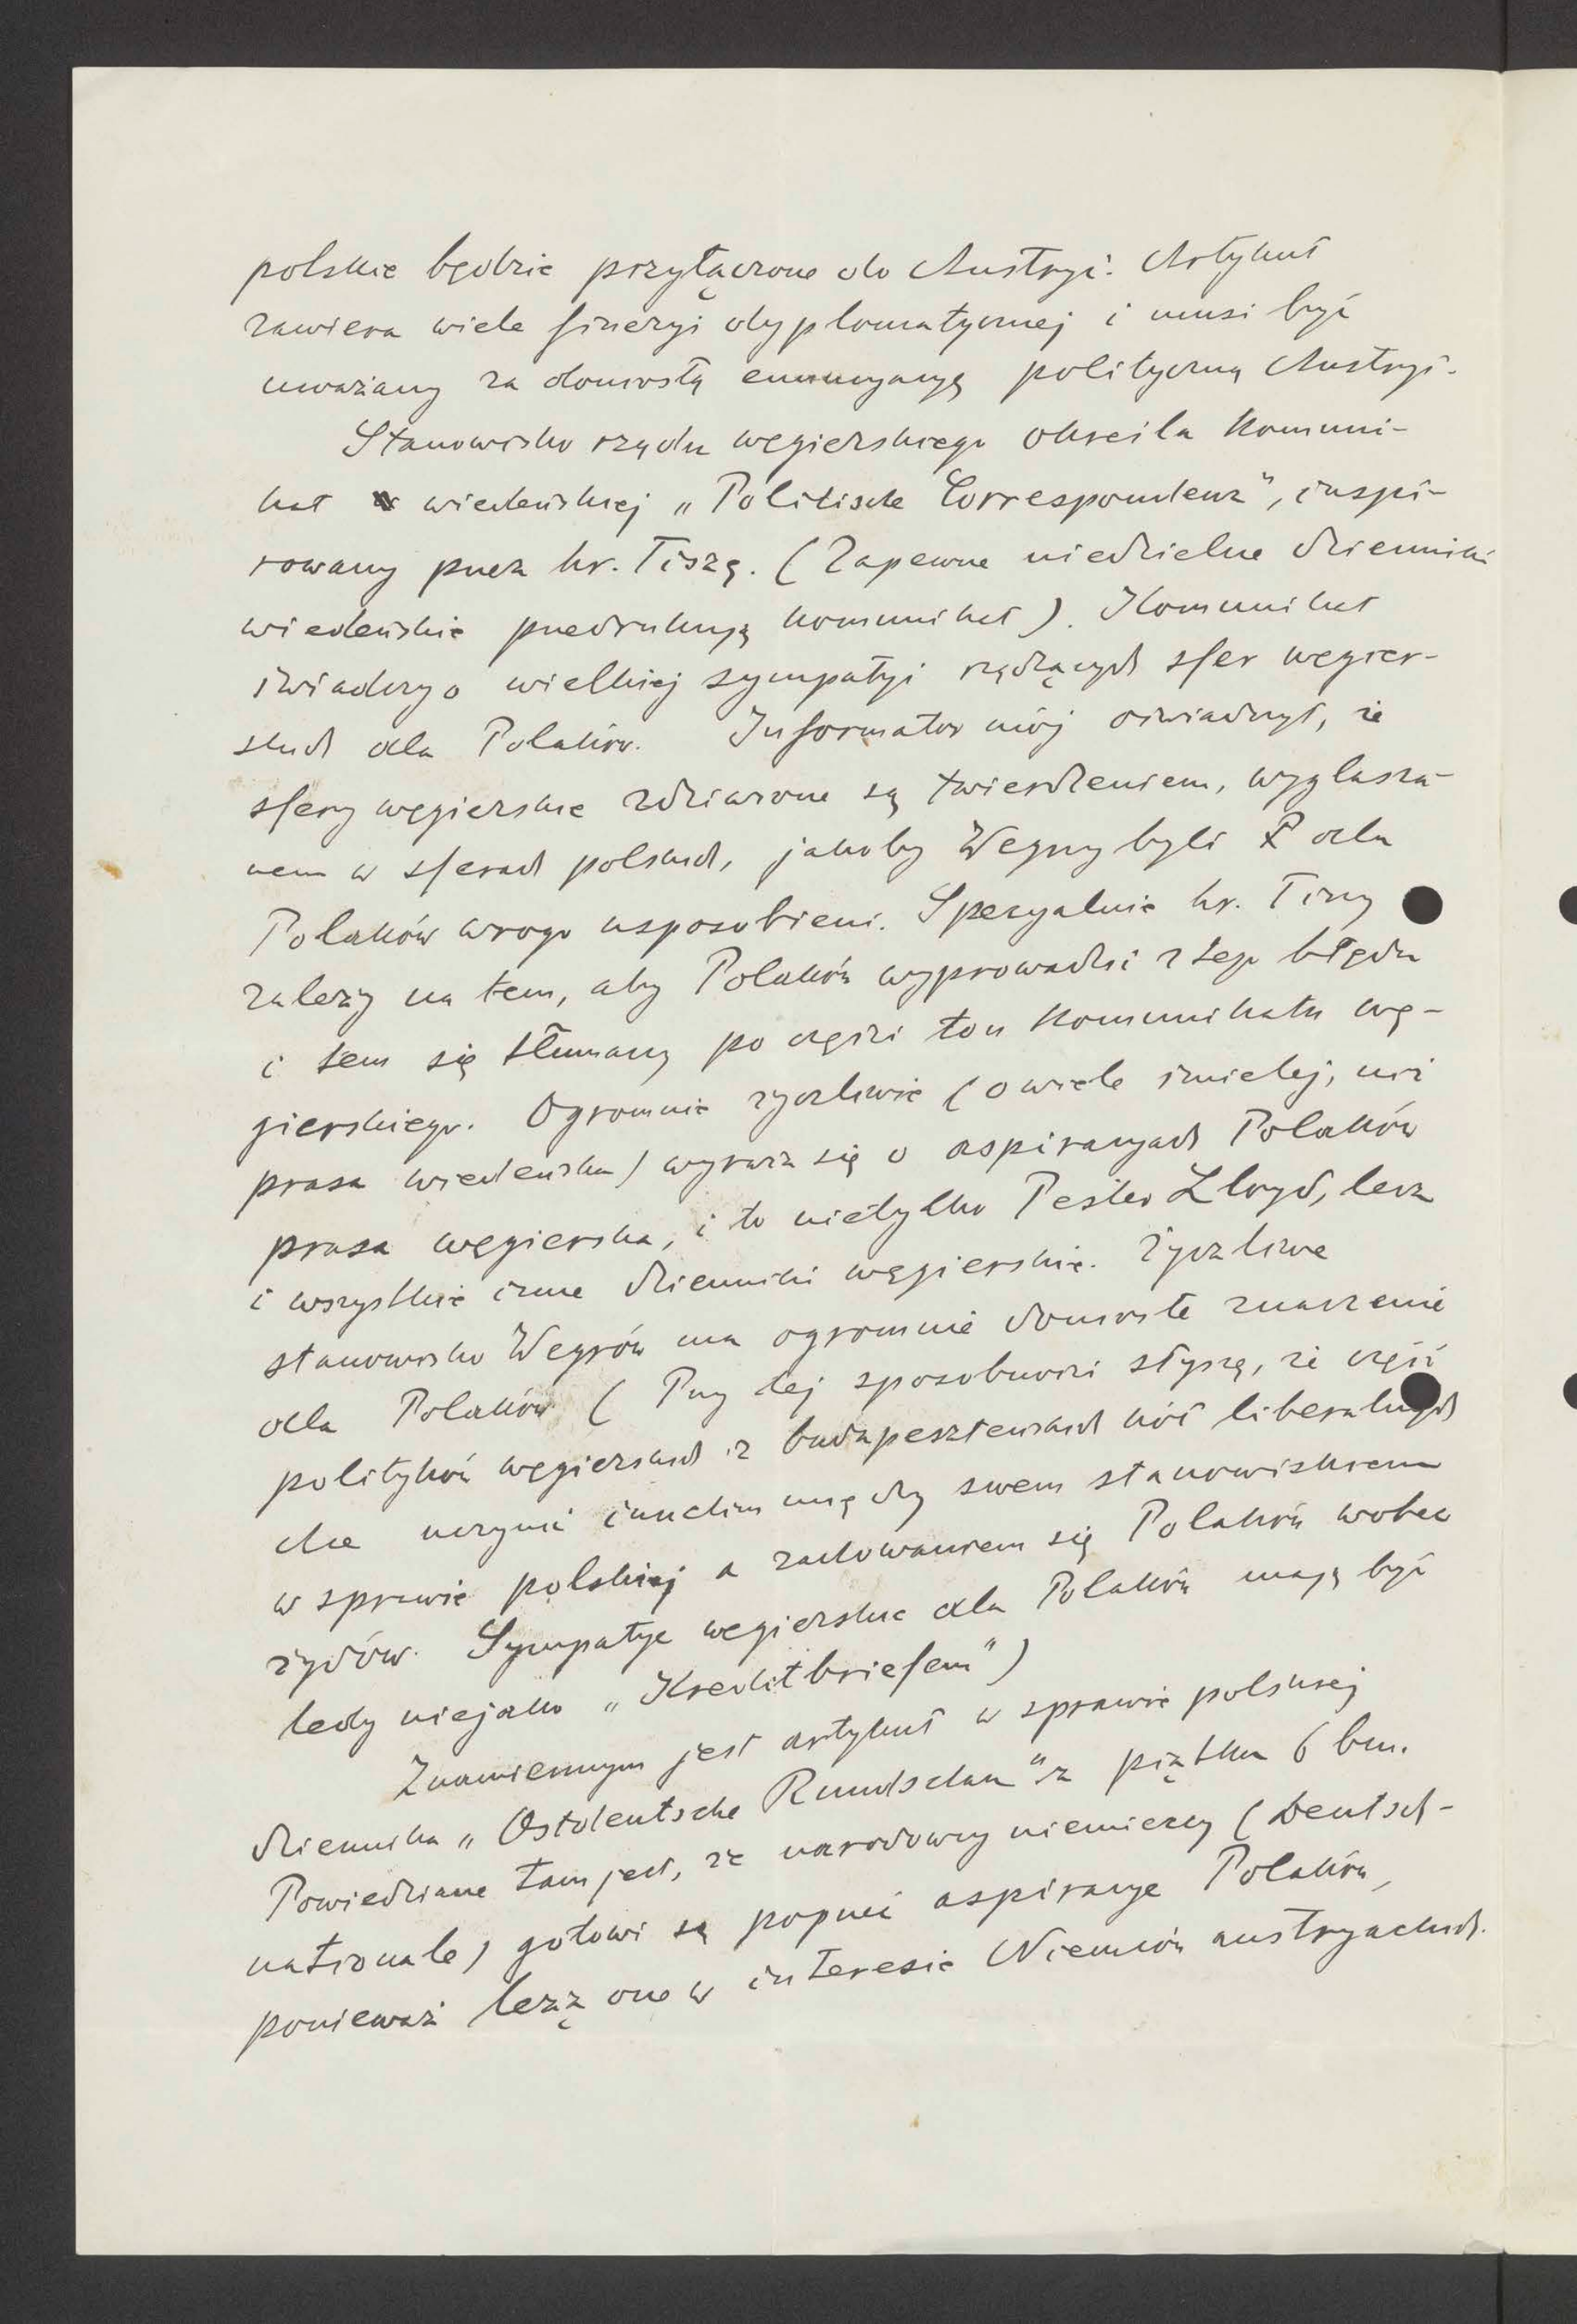 polskie będzie przyłączone do Austryi. Artykuł
zawiera wiele finezyi dyplomatycznej i musi być
uważany za doniosłą enuncyacyę polityczną Austryi.
Stanowisko rządu węgierskiego określa komuni-
kat w wiedeńskiej „Politische Correspondenz", inspi-
rowany przez hr. Tiszę. (Zapewne niedzielne dzienniki
wiedeńskie przedrukują komunikat). Komunikat
świadczy o wielkiej sympatyi rządzących sfer węgier-
skich dla Polaków. Informator mój oświadczył, że
sfery węgierskie zdziwione są twierdzeniem, wygłasza-
nem w sferach polskich, jakoby Węgrzy byli dla
Polaków wrogo usposobieni. Specyalnie hr. Tiszy
zależy na tem, aby Polaków wyprowadzić z tego błędu
i tem się tłumaczy po części ton komunikatu wę-
gierskiego. Ogromnie życzliwie (o wiele śmielej, niż
prasa wiedeńska) wyraża się o aspiracyach Polaków
prasa węgierska, i to nietylko Pester Lloyd, lecz
i wszystkie inne dzienniki węgierskie. Życzliwe
stanowisko Węgrów ma ogromnie doniosłe znaczenie
dla Polaków. (Przy tej sposobności słyszę, że część
polityków węgierskich z budapeszteńskich kół liberalnych
chce uczynić iunctim między swem stanowiskiem
w sprawie polskiej a zachowaniem się Polaków wobec
żydów. Sympatye węgierskie dla Polaków mają być
tedy niejako „Kreditbriefem")
Znamiennym jest artykuł w sprawie polskiej
dziennika „Ostdeutsche Rundschau" z piątku 6 bm.
Powiedziane tam jest, że narodowcy niemieccy (Deutsch-
nationale) gotowi są poprzeć aspiracye Polaków,
ponieważ leżą one w interesie Niemców austryackich.